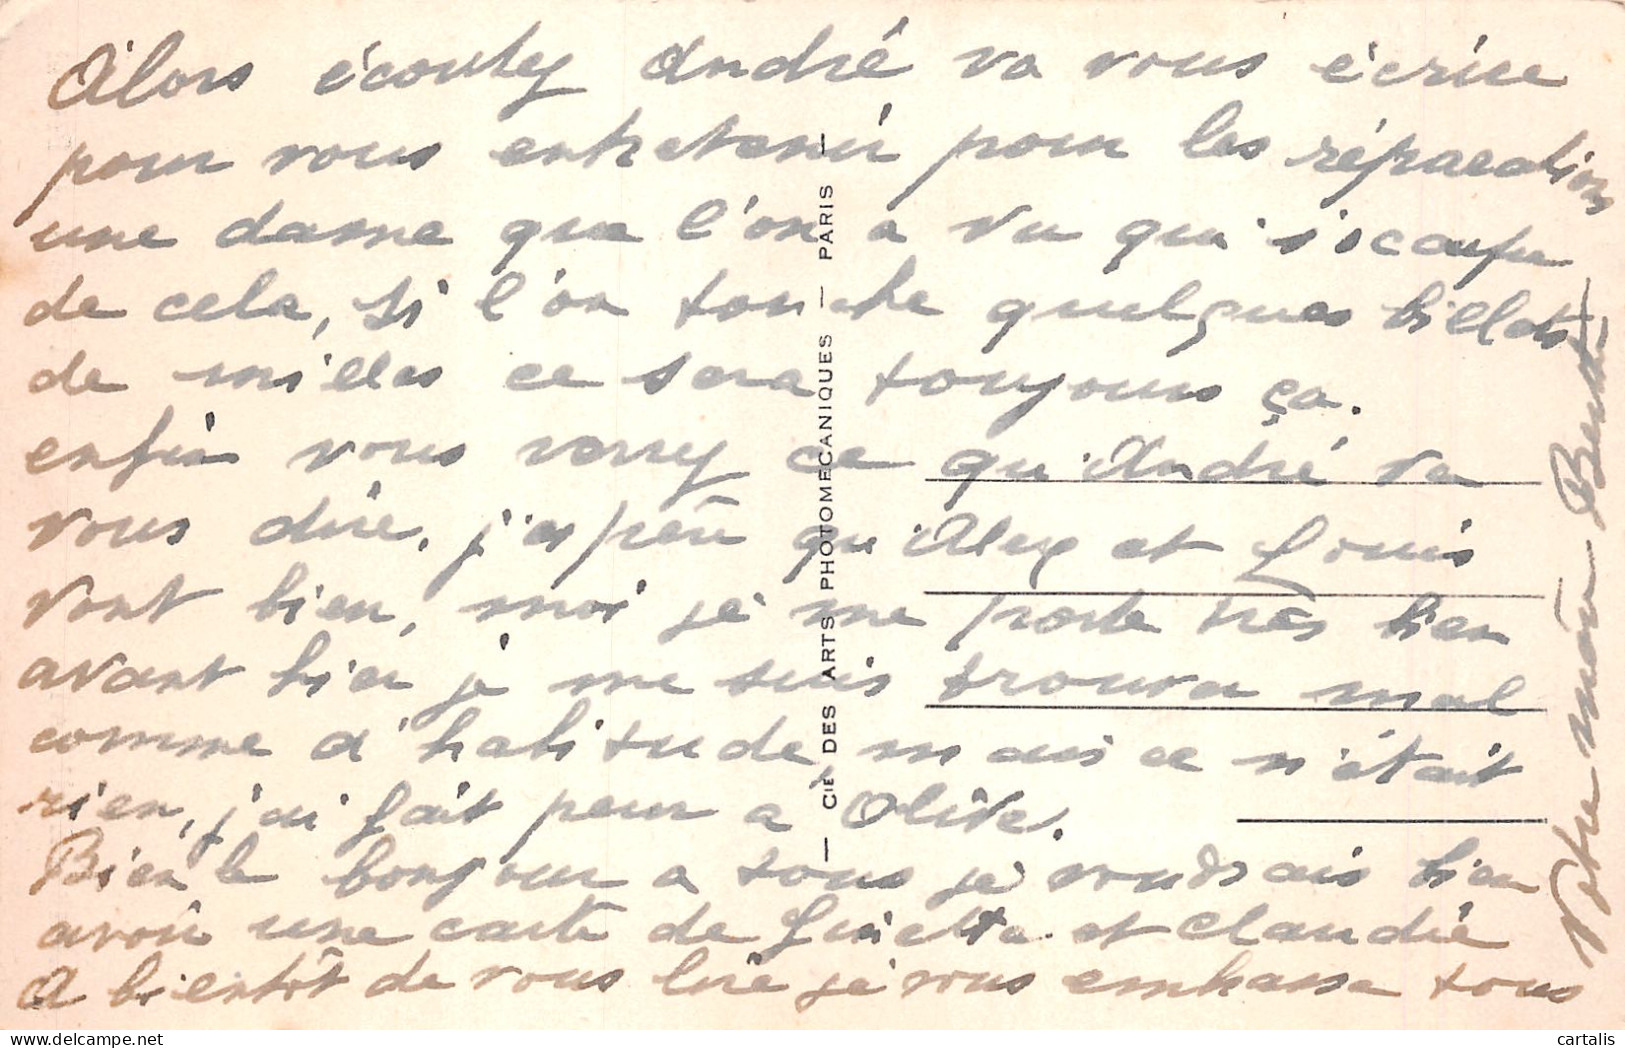 Alors écoutez André va vous écrire
pour vous entretenir pour les réparations
une dame que l'on a vu qui s'iscaupe
de cela, si l'on touche quelques billets
de milles ce sera toujours ça.
enfin vous verrez ce qu'André va
vous dire, j'espère qu'Alex et Louis
vont bien, moi je me porte très bien
avant hier je me suis trouver mal
comme d'habitude, mais ce n'était
rien, j'ai fait peur à Olive.
Bien le bonjour a tous je voudrais bien
avoir une carte de Ginetta et Claudie
A bientôt de vous lire je vous embrasse tous
Votre
CIE DES ARTS PHOTOMECANIQUES — PARIS —
cartalis